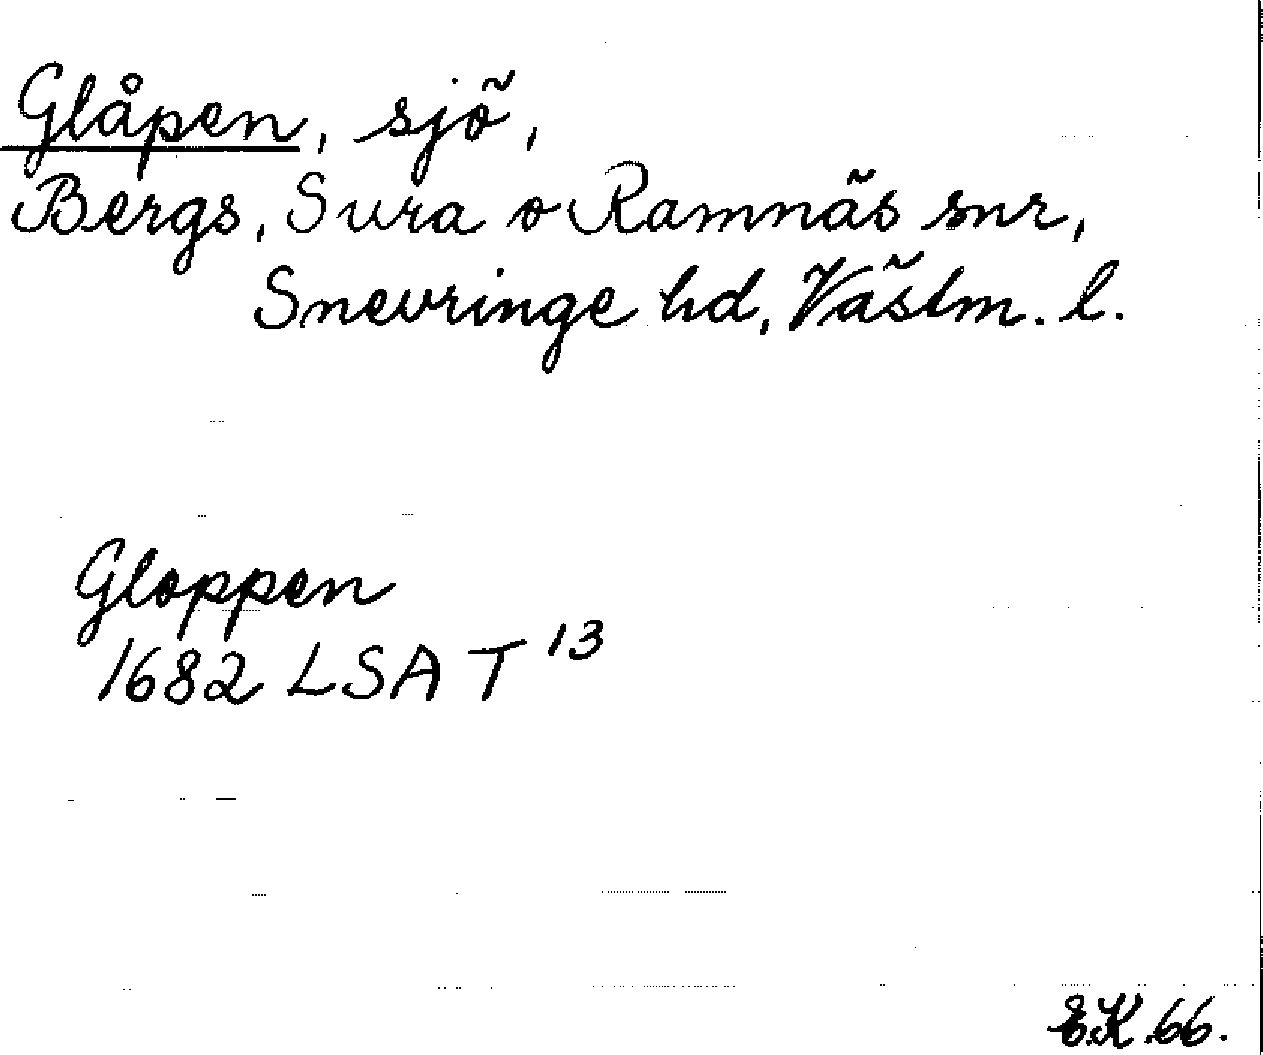 Glåpen, sjö,
Bergs, Sura o Ramnäs snr,
Snevringe hd, Västm. l.
Gloppen
1682 LSA T 13
E.K. 66.